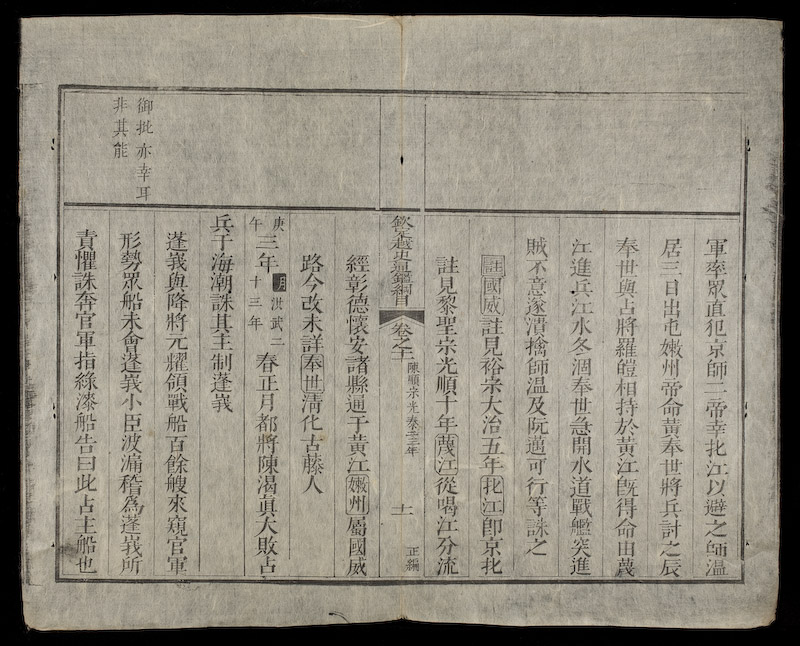 軍率眾直犯京師二帝幸北江以避之師溫
居三日出屯嫩州帝命黃奉世將兵討之辰
奉世與占將羅皚相持於黃江既得命由蔑
江進兵江水冬涸奉世急開水道戰艦突進
賊不意遂潰擒師溫及阮邁可行等誅之
註國威註見裕宗大治五年北江即京北
註見黎聖宗光順十年蔑江從喝江分流
欽定越史通鑑綱目
卷之十一
陳順宗光泰二三年
十一
正編
經彰德懷安諸縣通于黃江嫩州屬國威
路今改未詳奉世清化古藤人
庚午三年
明洪武二十三年
春正月都將陳渴真大敗占
兵于海潮誅其主制蓬峩
蓬峩與降將元耀領戰船百餘艘來窺官軍
形勢眾船未會蓬峩小臣波漏稽為蓬峩所
責懼誅奔官軍指綠漆船告曰此占主船也
御批亦幸耳
非其能